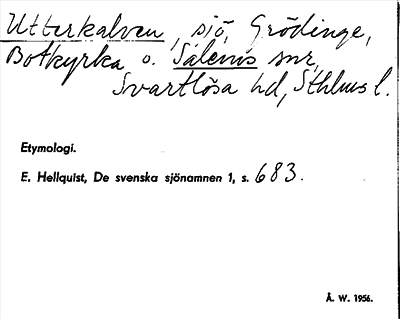 Utterkalven, sjö, Grödinge,
Botkyrka o. Salems snr,
Svartlösa hd, Sthlms l.
Etymologi.
E. Hellquist, De svenska sjönamnen 1, s. 683.
Å. W. 1956.